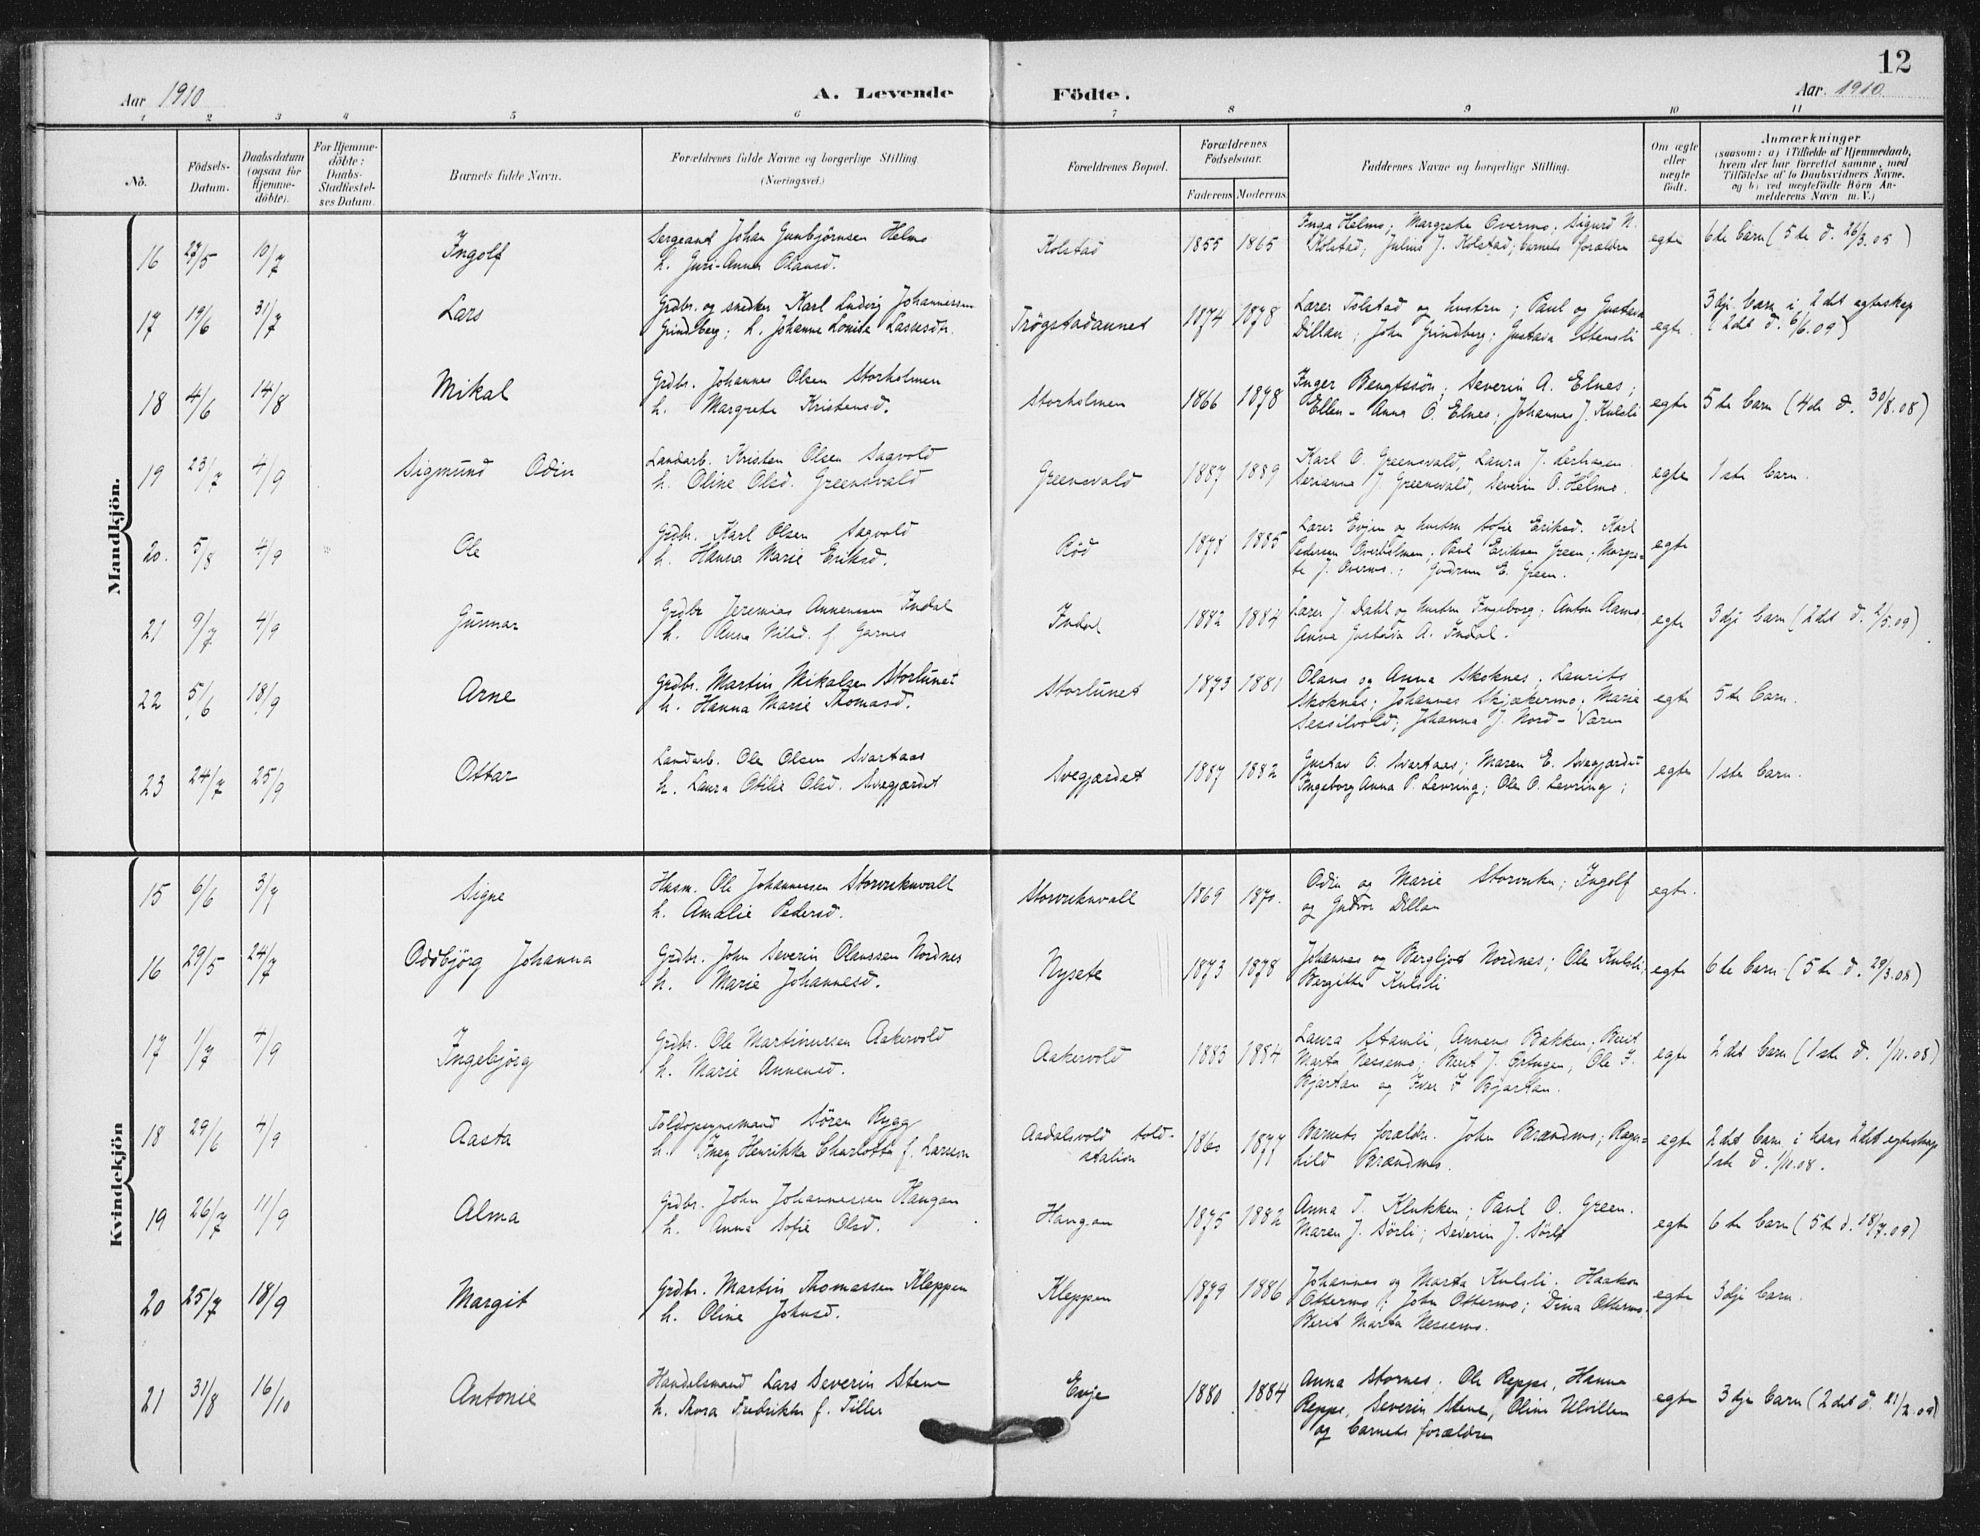 12
Aar 1910
A. Levende Födte.
Aar 1910
1 2 3 4 5 6 7 8 9 10 11
No.
Födsels-Datum.
Daabsdatum (ogsaa for Hjemme-döbte).
For Hjemme-döbte: Daabs-Stadfæstel-ses Datum.
Barnets fulde Navn.
Forældrenes fulde Navne og borgerlige Stilling. (Næringsvei.)
Forældrenes Bopæl.
Forældrenes Födselsaar.
Faderens Moderens
Faddernes Navne og borgerlige Stilling.
Om ægte eller uægte födt.
Anmærkninger
(saasom: a) i Tilfælde af Hjemmedaab, hvem der har forrettet samme, med Tilföielse af to Daabsvidners Navne, og b) ved uægtefödte Börn Anmelderens Navn m. V.)
Mandkjön.
16 27/5 10/7 Ingolf
Sergeant Johan Gunbjörnsen Helmo
h. Guri-Anna Olausd.
Kolstad 1855 1865
Inga Helmo; Margrete Overmo, Sigurd N.
Kolstad; Julius J. Kolstad; barnets forældre
egte 6te barn (5te d. 26/3.05)
17 19/6 31/7 Lars
Grdbr. og snedker Karl Ludvig Johannessen
Grindberg; h. Johanna Lovise Lassesdr.
Trögstadaunet 1874 1878
Lærer Tolstad og hustru; Paul og Gustava
Dillan; John Grindberg; Gustava Stensli
egte 3dje barn i 2det egteskap
(2det d. 6/6.09)
18 4/6 14/8 Mikal
Grdbr. Johannes Olsen Storholmen
h. Margrete Kristensd.
Storholmen 1866 1878
Inger Bengtssön; Severin A. Elnes;
Ellen-Anna O. Elnes; Johannes J. Kulsli
egte 5te barn (4de d. 30/8.08)
19 23/7 4/9 Sigmund Odin
Landarb. Kristen Olsen Sagvold
h. Oline Olsd. Greensvald
Greensvald 1887 1889
Karl O. Greensvald, Laura J.
Serianna J. Greensvald, Severin O. Helmo.
egte 1ste barn.
20. 5/8 4/9 Ole
Grdbr. Karl Olsen Sagvold
h. Hanna Marie Eriksd.
Röd 1878 1885
Lærer Evjen og hustru Sofie Eriksd. Karl
Pedersen Overholmen; Paul Eriksen Green; Margre-
te J. Overmo.; Gudrun E. Green.
egte
21 9/7 4/9 Gunnar
Grdbr Jeremias Annensen Indal
h. Anna Nilsd. f. Garnes
Indal 1882 1884
Lærer J. Dahl og hustru Ingeborg; Anton
Anna Gustava A. Indal.
egte 3dje barn (2det d. 2/5.09)
22 5/6 18/9 Arne
Grdbr. Martin Mikalsen Storlunet
h. Hanna Marie Thomasd.
Storlunet 1873 1881
Olaus og Anna Skoknes; Laurits
Skoknes; Johannes Skjækermo; Marie
Sessilvold; Johanna J. Nord-Væren
egte 5te barn.
23 24/7 25/9 Ottar
Landarb. Ole Olsen Svartaas
h. Laura Otilie Olsd. Svegjærdet
Svegjærdet 1887 1882
Gustav O. Svartaas; Maren E. Svegjærdet
Ingeborg Anna P. Levring; Ole O. Levring;
egte 1ste barn.
Kvindekjön
15 6/6 3/7 Signe
Husm. Ole Johannessen Storvuknvall
h. Amalie Pedersd.
Storvuknvall 1869 1870.
Odin og Marie Storvukn; Ingolf
og Gudvor Dillan
egte.
16 29/5 24/7 Oddbjörg Johanna
Grdbr. John Severin Olaussen Nordnes
h. Marie Johannesd.
Nysete 1873 1878
Johannes og Bergljot Nordnes; Ole Kulsli;
Bergitte Kulsli
egte 6te barn (5te d. 29/3.08)
17 1/7 4/9 Ingebjörg
Grdbr. Ole Martinussen Aakervold
h. Marie Annensd.
Aakervold 1883 1884
Laura Stamli, Annæus Bakken, Berit
Marta Nessemo; Berit J. Ertugen; Ole I.
Bjartan og Iver I Bjartan.
egte 2det barn (1ste d. 1/11.08)
18 29/6 4/9 Aasta
Toldopsynsmand Sören Rygg
h. Inay Henrikka Charlotta f. Larssen
Aadalsvold told-
station 1860 1877
Barnets forældre. John Brændmo; Ragn-
hild Brændmo.
egte 2det barn i hans 2det egteskap
1ste d. 1/11.08.
19 26/7 11/9 Alma
Grdbr. John Johannessen Haugan
h. Anna Sofie Olsd.
Haugan 1875 1882
Anna T. Klukken; Paul O. Green.
Maren J. Sörli; Severin J. Sörli
egte 6te barn (5te d. 18/7.09)
20 25/7 18/9 Margit
Grdbr. Martin Thomassen Kleppen
h. Oline Johnsd.
Kleppen 1879 1886
Johannes og Marta Kulsli. Haakon
Ottermo; John Ottermo; Dina Ottermo.
Berit Marta Nessemo.
egte 3dje barn.
21 31/8 16/10 Antonie
Handelsmand Lars Severin Stene
h. Thora Fredrikke f. Tiller
Evje 1880 1884
Anna Stornes; Ole Reppe, Hanna
Reppe, Severin Stene, Oline Ulvillen
og barnets forældre
egte 3dje barn (2det d. 21/2.09)